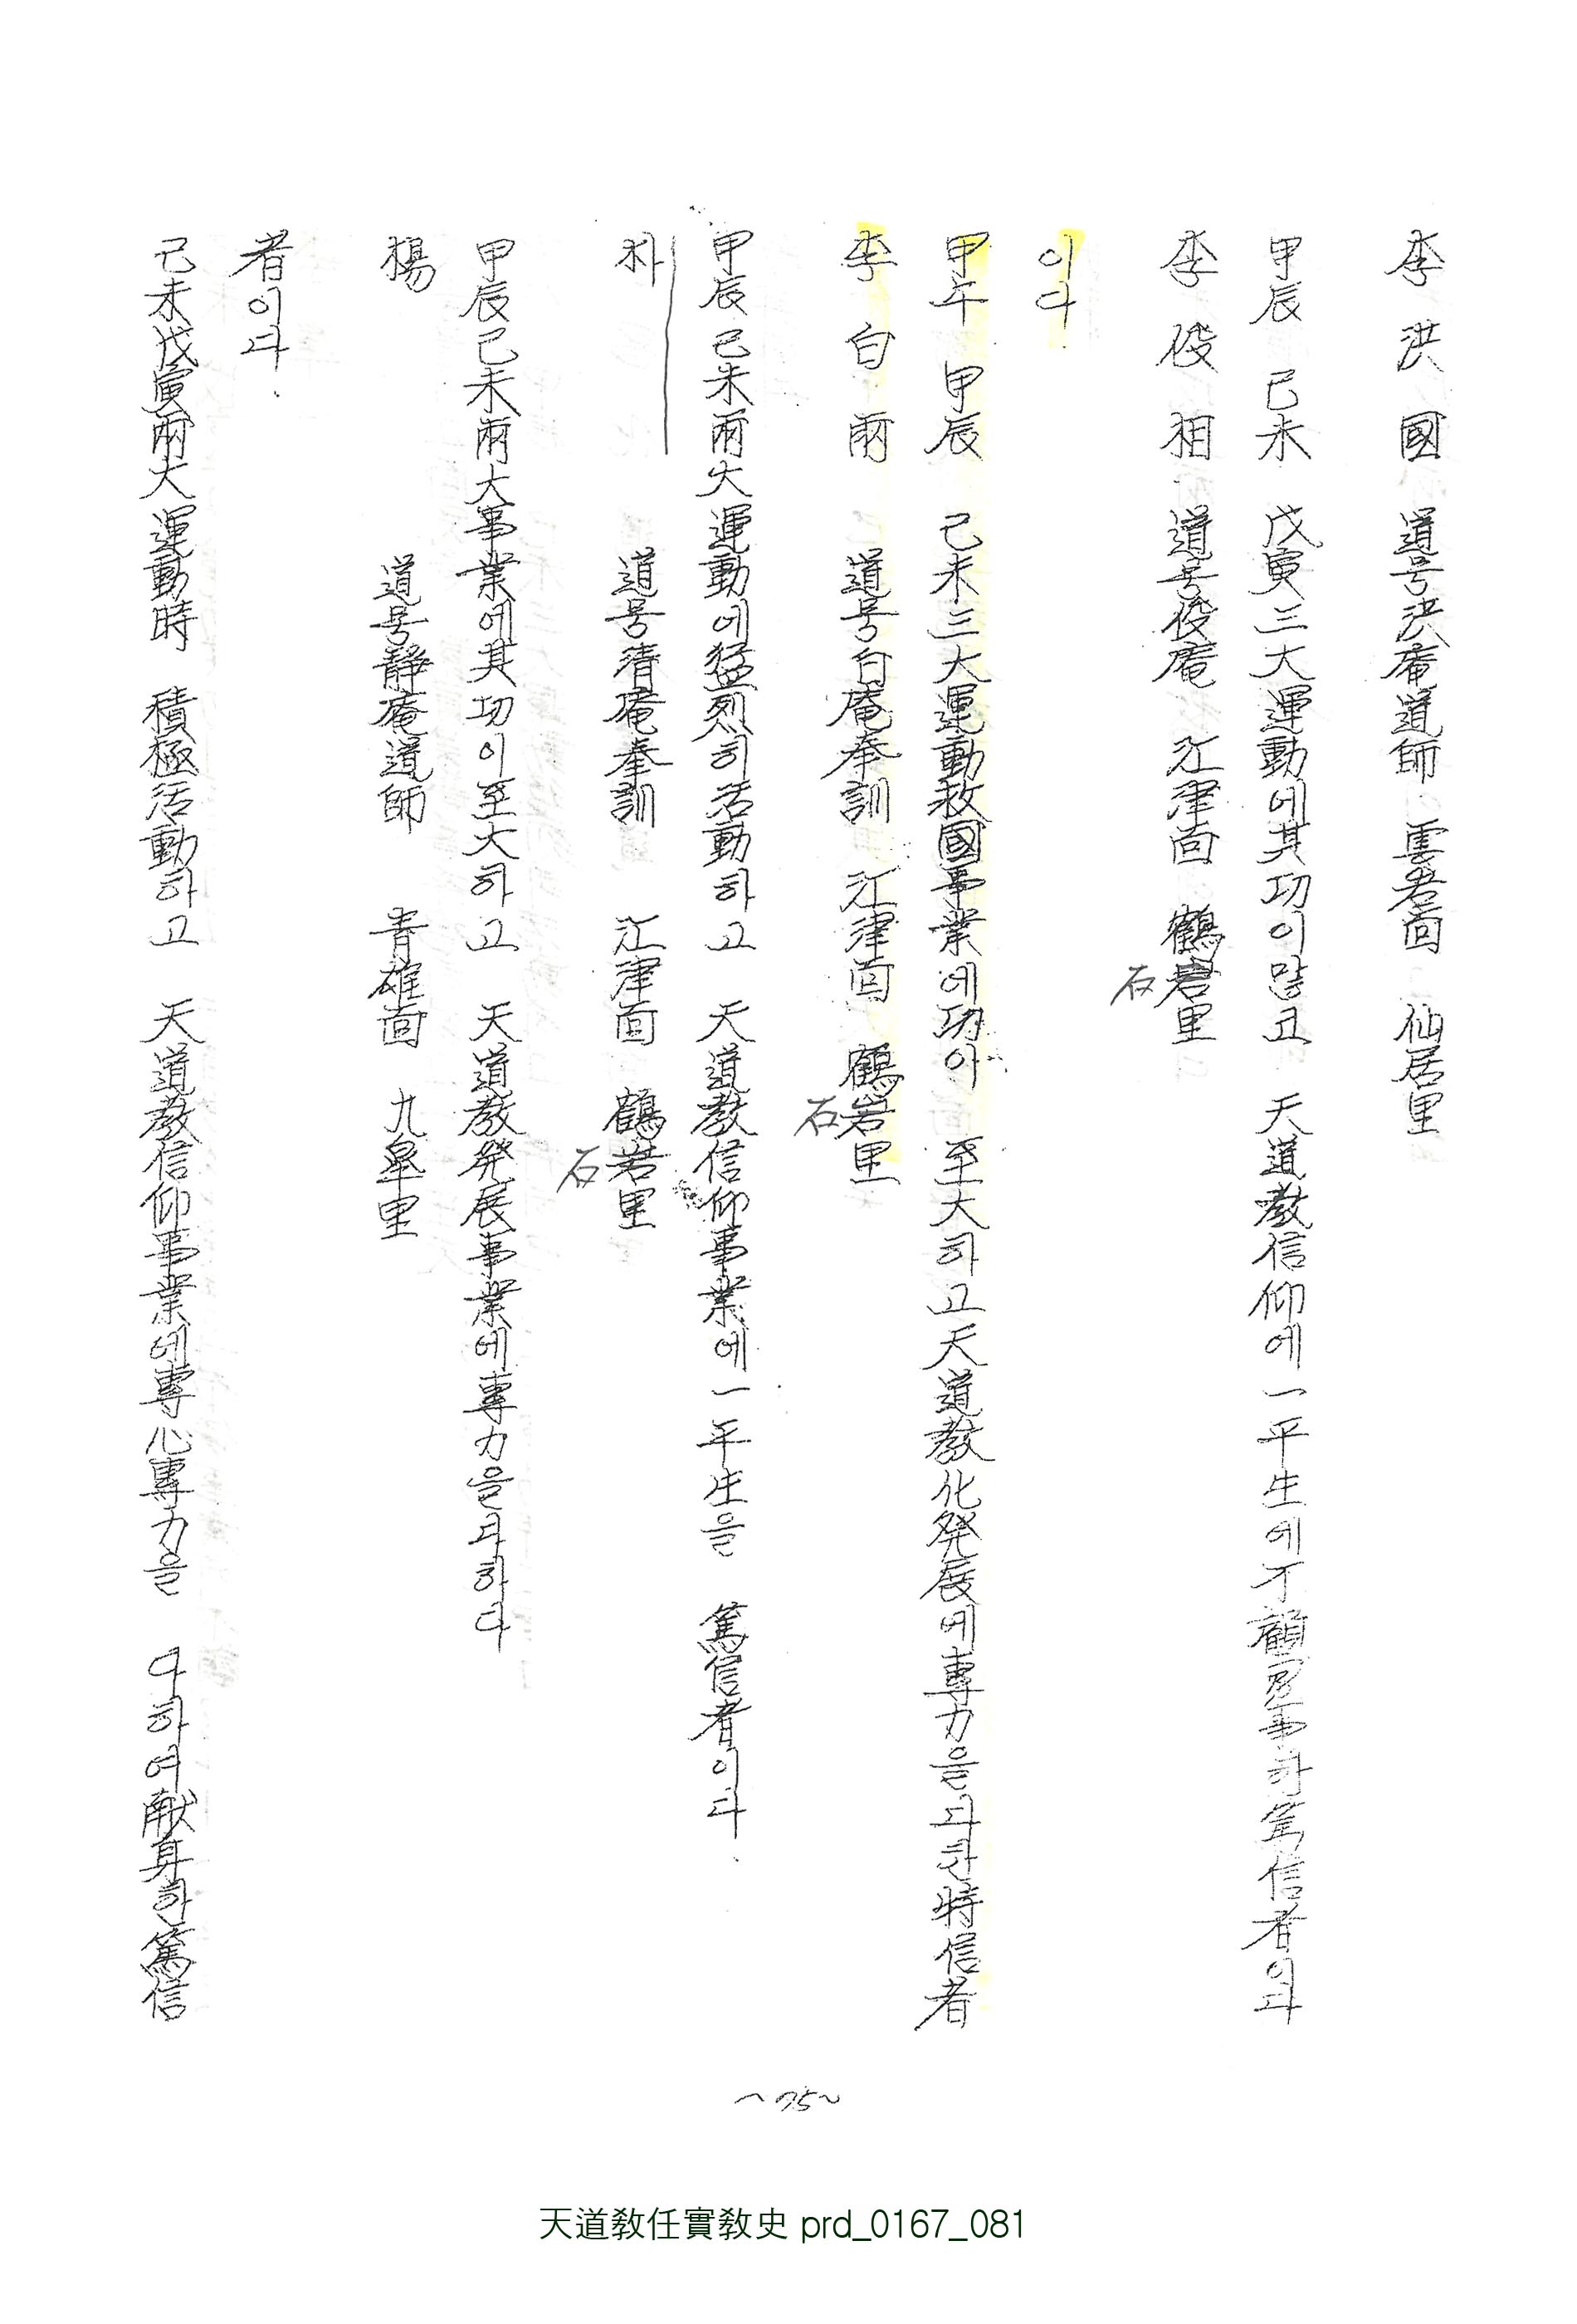 己未戊寅兩大運動時 積極活動하고 天道教信仰事業에專心專力을 다하여献身한篤信
者이다.
楊 道号靜庵道師 青雄面 九皐里
甲辰己未兩大事業에其功이至大하고 天道教発展事業에專力을다하다
朴 道号清庵奉訓 江津面 鶴岩里
石
甲辰己未兩大運動에猛烈히活動하고 天道教信仰事業에一平生을 篤信者이다.
李白雨 道号白庵奉訓 江津面 鶴岩里
石
甲午 甲辰 己未三大運動救國事業에功이 至大하고天道教化発展에專力을다한特信者
이다.
李俊相 道号俊庵 江津面 鶴岩里
石
甲辰 己未 戊寅三大運動에其功이많고 天道教信仰에一平生에不顧家事한篤信者이다
李洪國 道号洪庵道師 雲岩面 仙居里
~75~
天道敎任實敎史 prd_0167_081